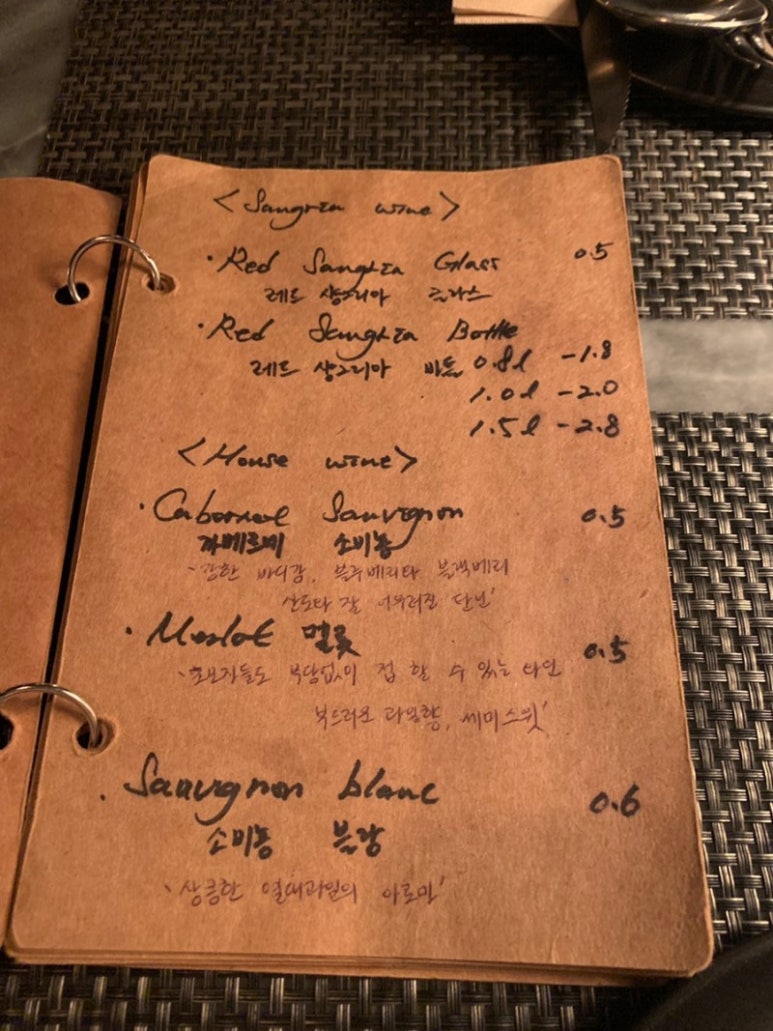 <Sangria wine>
· Red Sangria Glass 0.5
레드 샹그리아 글라스
· Red Sangria Bottle
레드 샹그리아 바틀 0.8l -1.8
1.0l -2.0
1.5l -2.8
<House wine>
· Cabernet Sauvignon 0.5
까베르네 소비뇽
'강한 바디감, 블루베리타 블랙베리
산도타 잘 어우러진 단닌'
· Merlot 멀롯 0.5
'초보자들도 부담없이 접 할 수 있는 와인
부드러운 과일향, 세미스윗'
· Sauvignon blanc 0.6
소비뇽 블랑
'상큼한 열대과일의 아로마'